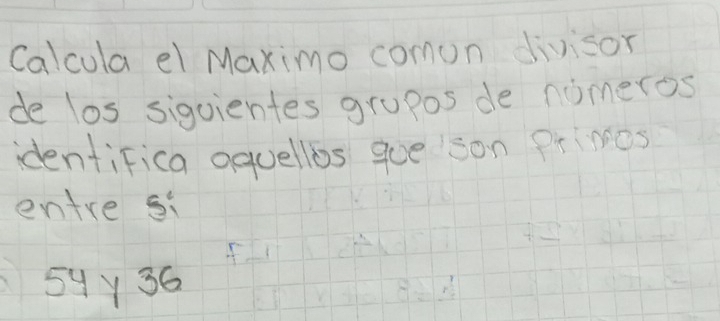 Calcula el Maximo comun divisor
de los siguientes grupos de números
identifica aquellos que son primos
entre sí
54 y 36